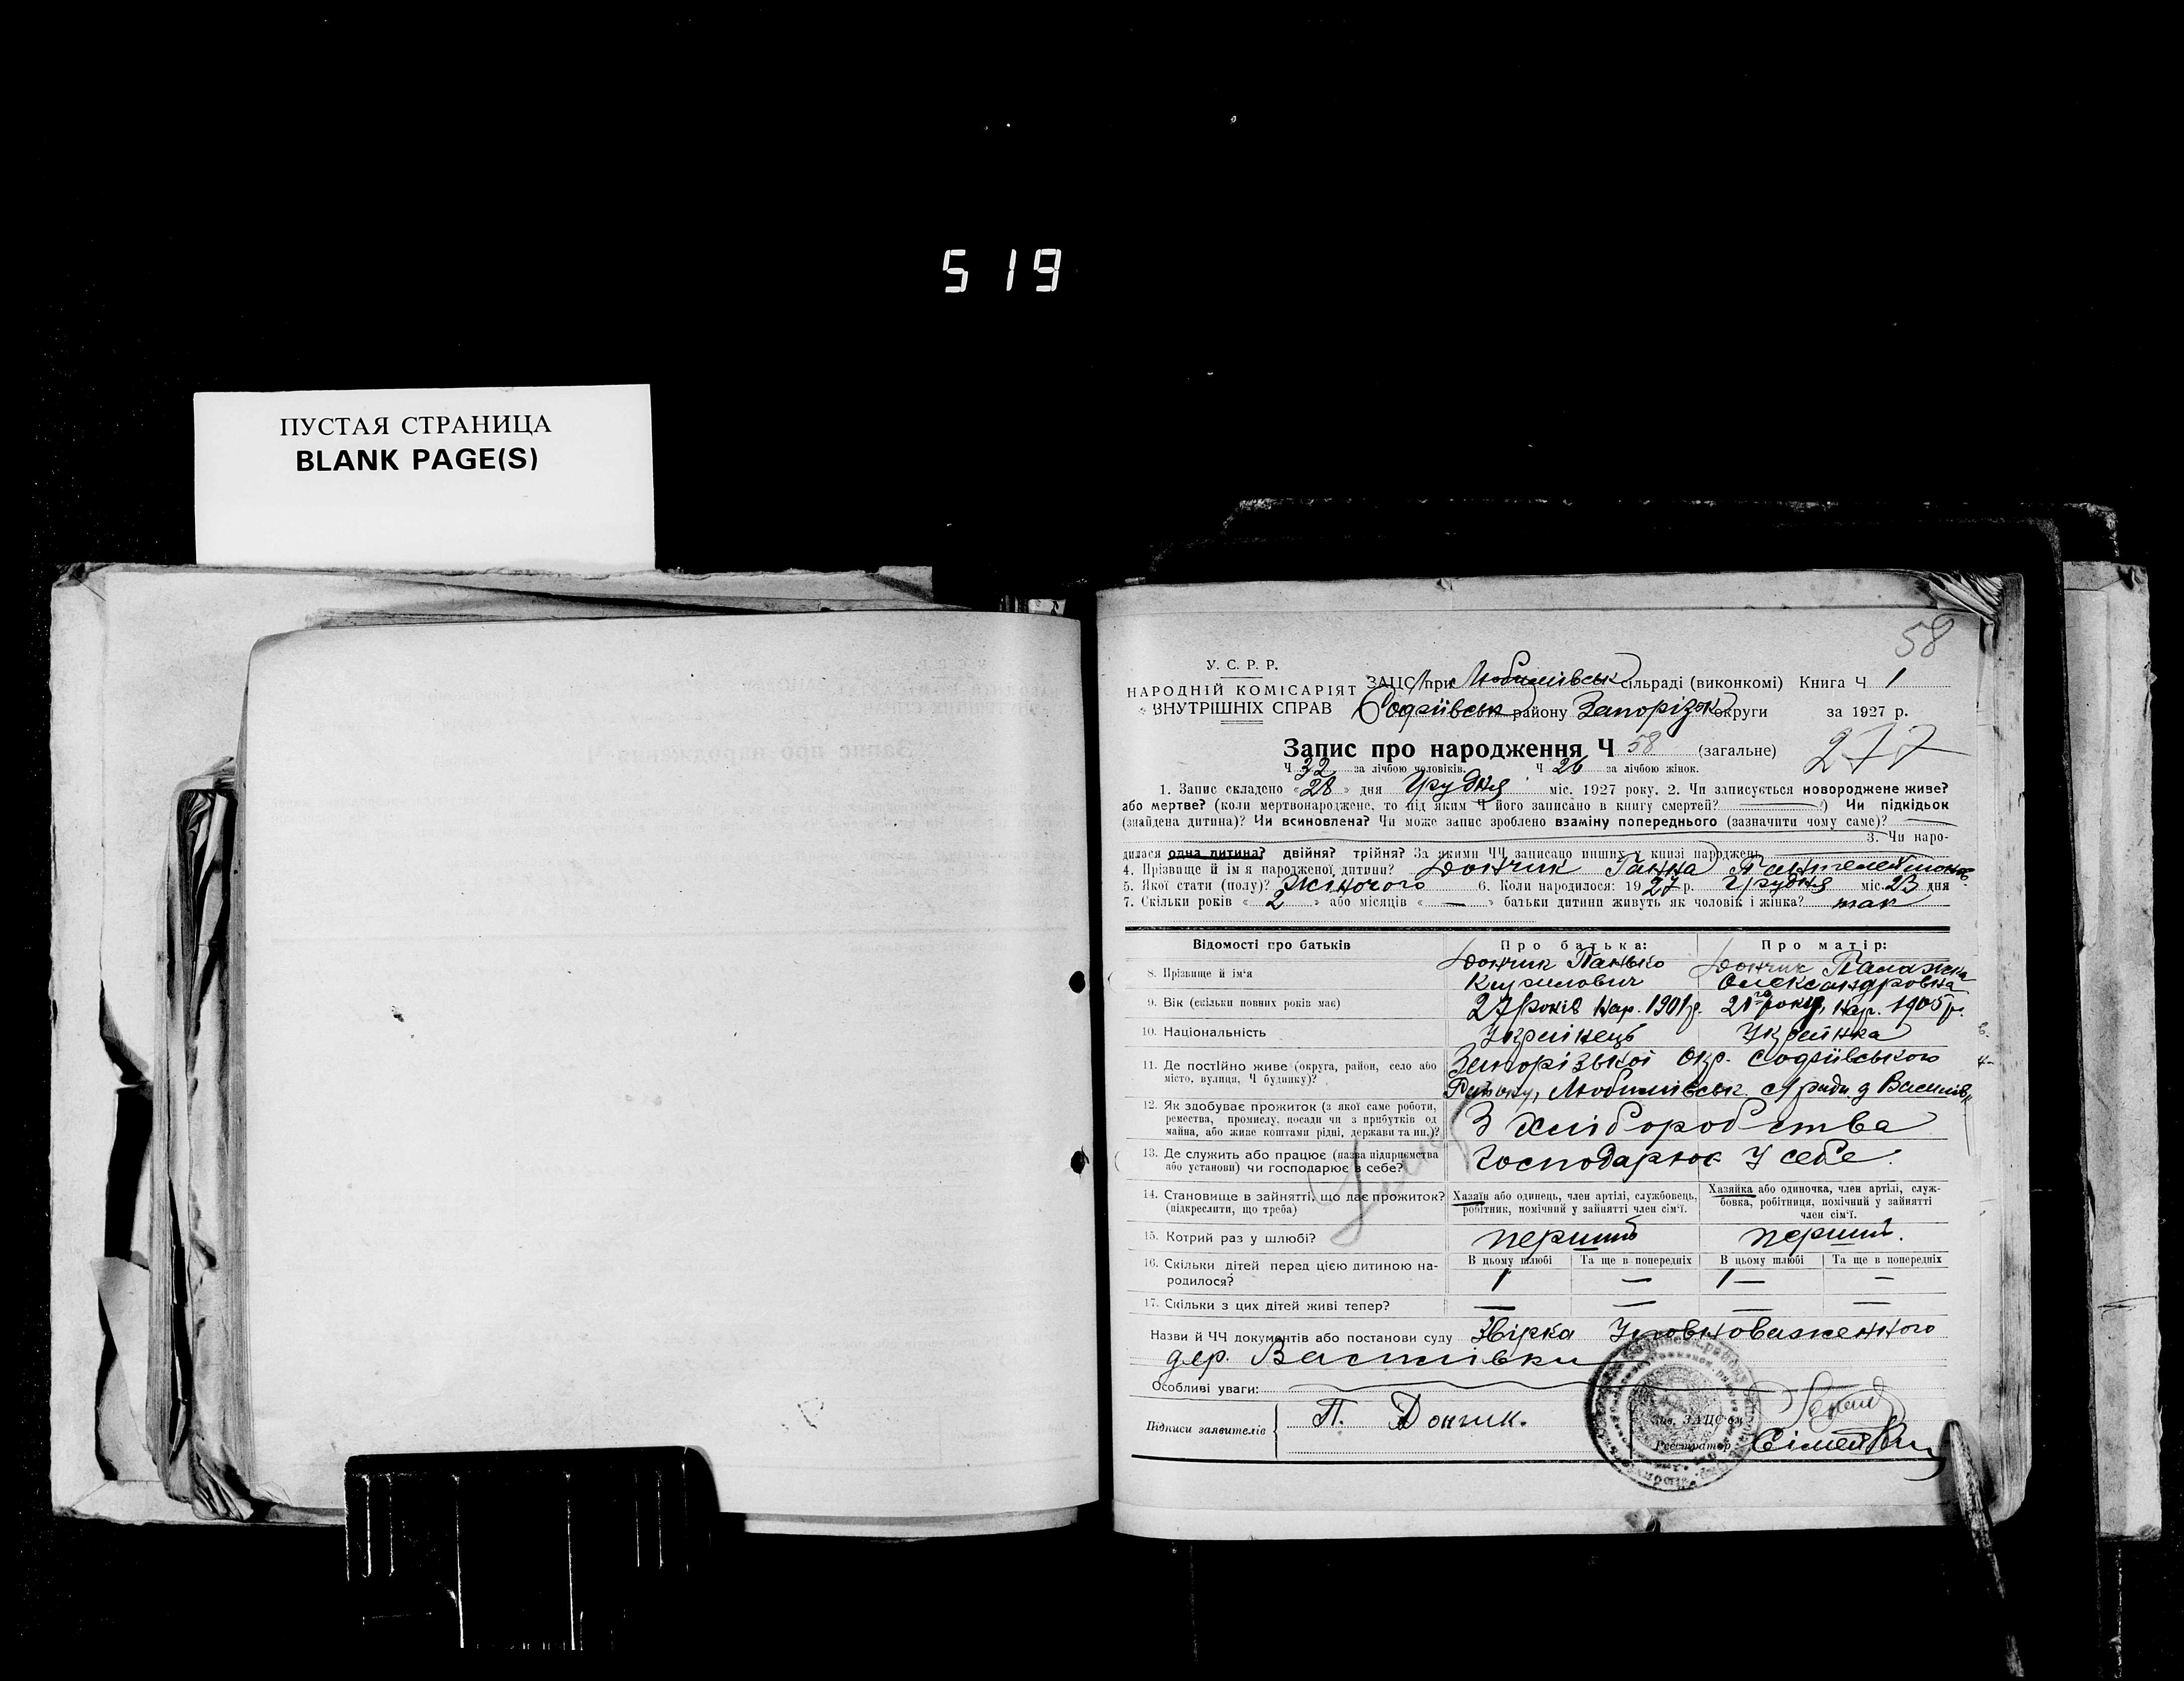 519
ПУСТАЯ СТРАНИЦА
BLANK PAGE(S)
58
У. С. Р. Р.
НАРОДНІЙ КОМІСАРІЯТ
ВНУТРІШНІХ СПРАВ
ЗАЦС при Любимівськ сільраді (виконкомі) Книга Ч 1
Софіївськ району Запорізьк округи за 1927 р.
Запис про народження Ч 58 (загальне)
277
Ч 32 за лічбою чоловіків. Ч 26 за лічбою жінок.
1. Запис складено «28» дня Грудня міс. 1927 року. 2. Чи записується новороджене живе?
або мертве? (коли мертвонароджене, то під яким Ч його записано в книгу смертей? —) Чи підкідьок
(знайдена дитина)? Чи всиновлена? Чи може запис зроблено взаміну попереднього (зазначити чому саме)? —
3. Чи наро-
дилася одна дитина? двійня? трійня? За якими ЧЧ записано инших у книзі народжень
4. Прізвище й ім'я народженої дитини? Дончик Ганна Пантелеймонов
5. Якої стати (полу)? жіночого 6. Коли народилося: 1927 р. Грудня міс. 23 дня
7. Скільки років «2» або місяців «—» батьки дитини живуть як чоловік і жінка? так
Відомості про батьків Про батька: Про матір:
8. Прізвище й ім'я Дончик Панько Дончик Палажка
Кирилович Олександровна
9. Вік (скільки повних років має) 27 років нар. 1901 р. 21го року, нар. 1905 р.
10. Національність Українець Українка
11. Де постійно живе (округа, район, село або
місто, вулиця, Ч будинку)?
Запорізької Окр. Софіївського
Району, Любимівськ. с/ради д Василівк
12. Як здобуває прожиток (з якої саме роботи,
ремества, промислу, посади чи з прибутків од
майна, або живе коштами рідні, держави та ин.)?
З хліборобства
13. Де служить або працює (назва підприємства
або установи) чи господарює в себе?
Господарює у себе.
14. Становище в зайнятті, що дає прожиток?
(підкреслити, що треба)
Хазяїн або одинець, член артілі, службовець,
робітник, помічний у зайнятті член сім'ї.
Хазяйка або одиночка, член артілі, служ-
бовка, робітниця, помічний у зайнятті
член сім'ї.
15. Котрий раз у шлюбі? перший перший.
16. Скільки дітей перед цією дитиною на-
родилося?
В цьому шлюбі Та ще в попередніх В цьому шлюбі Та ще в попередніх
1 — 1 — —
17. Скільки з цих дітей живі тепер? — — — —
Назви й ЧЧ документів або постанови суду Звірка Уповноваженного
дер. Василівки
Особливі уваги:
Підписи заявителів П. Дончик.
Зав. ЗАЦС'ом
Реєстратор